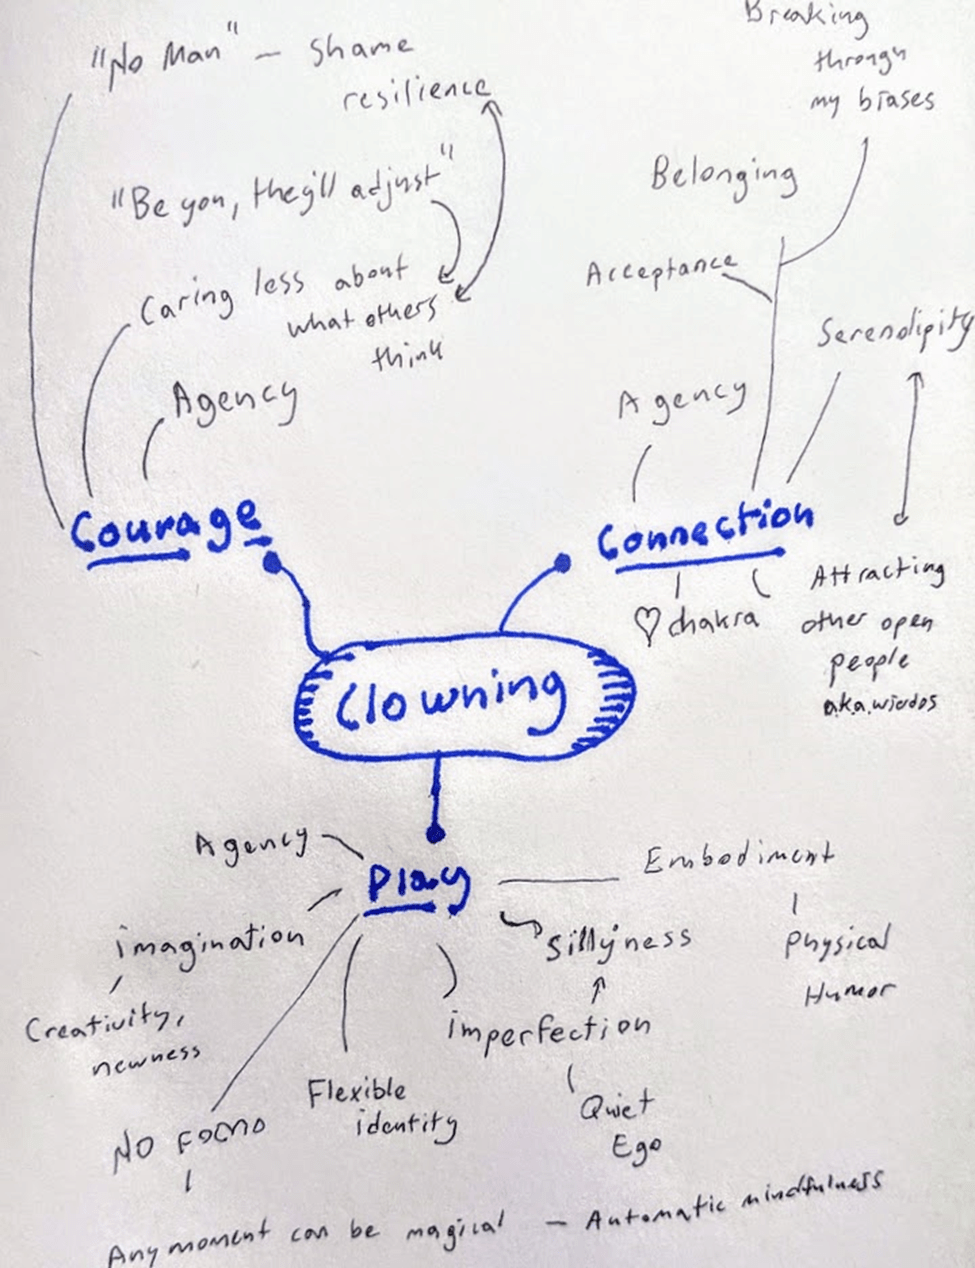 "No Man" — Shame
resilience
"Be you, they'll adjust"
Caring less about
what others
think
Agency
Courage
Breaking
through
my biases
Belonging
Acceptance
Serendipity
Agency
Connection
♡ chakra
Attracting
other open
people
a.k.a. wierdos
Clowning
Agency
Play
imagination
Creativity,
newness
NO FOMO
Any moment can be magical — Automatic mindfulness
Flexible
identity
imperfection
Quiet
Ego
Sillyness
Embodiment
Physical
Humor